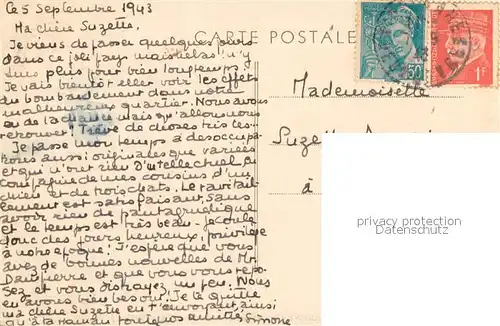 Ce 5 Septembre 1943
Ma chère Suzette.
Je viens de passer quelques jours
dans ce joli pays mais hélas! n'y
suis plus pour bien longtemps.
Je vais bientôt aller voir les effets
du bombardement dans notre
malheureux quartier. Nous avons
eu de la chance mais qu'allons nous
retrouver! Trêve de choses tristes!
Je passe mon temps à des occupa-
tions aussi originales que variées
et qui n'ont rien d'intellectuel en
compagnie de mes cousins d'un
chien et de trois chats. Le ravitail-
lement est satisfaisant, sans
avoir rien de pantagruélique
et le temps est très beau. Je coule
donc des jours heureux, privilège
à notre époque! J'espère que vous
avez de bonnes nouvelles de Mr
Dampierre et que vous vous repo-
sez et vous distrayez un peu. Nous
en avons bien besoin. Je te quitte
ma chère Suzette en t'envoyant ainsi
qu'à ta Maman toutes mes amitiés
Simone
CARTE POSTALE
50
1F
Mademoiselle
Suzette
à
privacy protection
Datenschutz